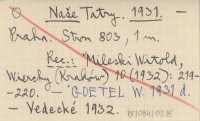 Naše Tatry. 1931. —
Praha. Stron 803, 1 m.
Rec.: Mileski Witold,
Wierchy (Kraków) 10 (1932): 219-
-220. – GOETEL W. 1931 d.
– Vedecké 1932.